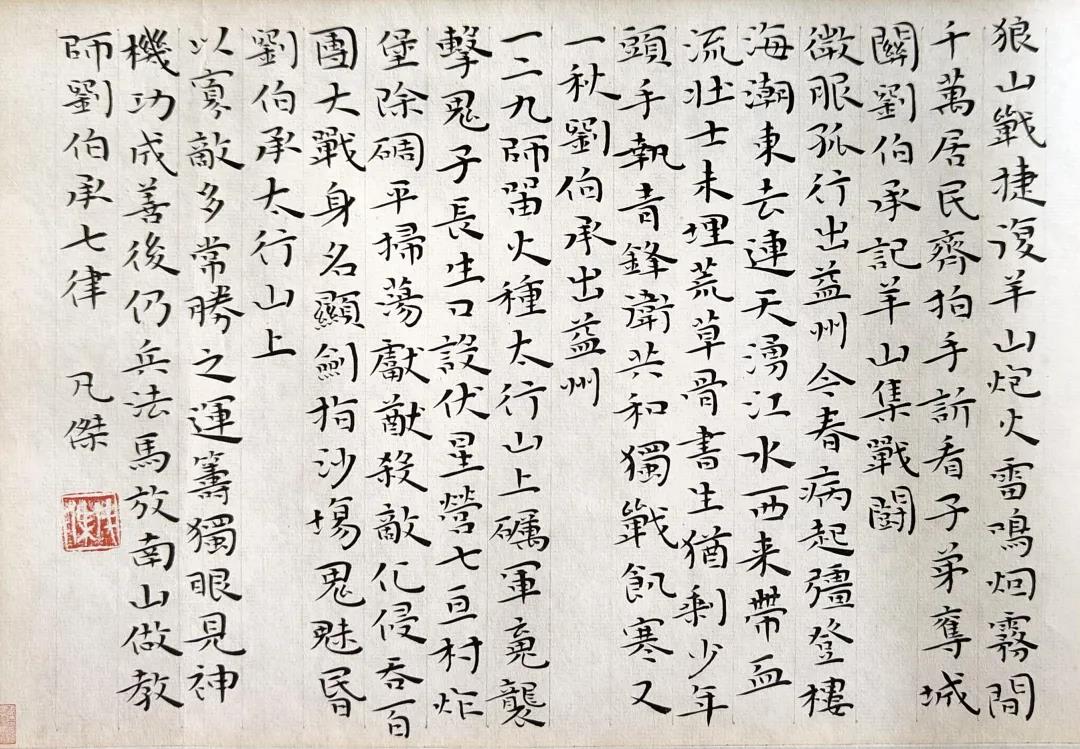 狼山戰捷復羊山炮火雷鳴炯霧間
千萬居民齊拍手訢看子弟奪城
關劉伯承記羊山集戰鬪
微服孤行出益州今春病起彊登樓
海潮東去連天湧江水西来帶血
流壮士未埋荒草骨書生猶剩少年
頭手執青鋒衛共和獨戰飢寒又
一秋劉伯承出益州
一二九師留火種太行山上礪軍竟襲
擊鬼子長生口設伏星營七亘村炸
堡除碉平掃蕩獻猷殺敵化侵吞百
團大戰身名顯劍指沙場鬼魅昏
劉伯承太行山上
以寡敵多常勝之運籌獨眼見神
機功成善後仍兵法馬放南山做教
師劉伯承七律 凡傑